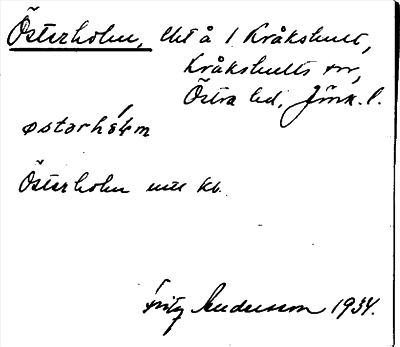 Österholm, lht å 1 Kråkshult,
Kråkshults sn,
Östra hd, Jönk. l.
østərhɔ́lm
Österholm
Fritz Andersson 1934.